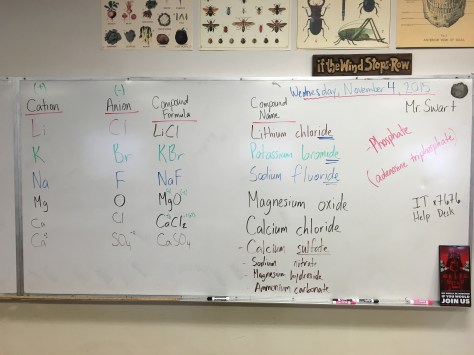 if the Wind Stops-Row
Wednesday, November 4, 2015
Mr. Swart
(+) (-)
Cation Anion Compound Formula Compound Name
Li Cl LiCl Lithium chloride
K Br KBr Potassium bromide
Na F NaF Sodium fluoride
Mg O MgO Magnesium oxide
Ca Cl CaCl₂ Calcium chloride
Ca SO₄ CaSO₄ - Calcium sulfate
- Sodium nitrate
- Magnesium hydroxide
- Ammonium carbonate
- Phosphate
(adenosine triphosphate)
IT x7676
Help Desk
IF YOU WOULD
JOIN US